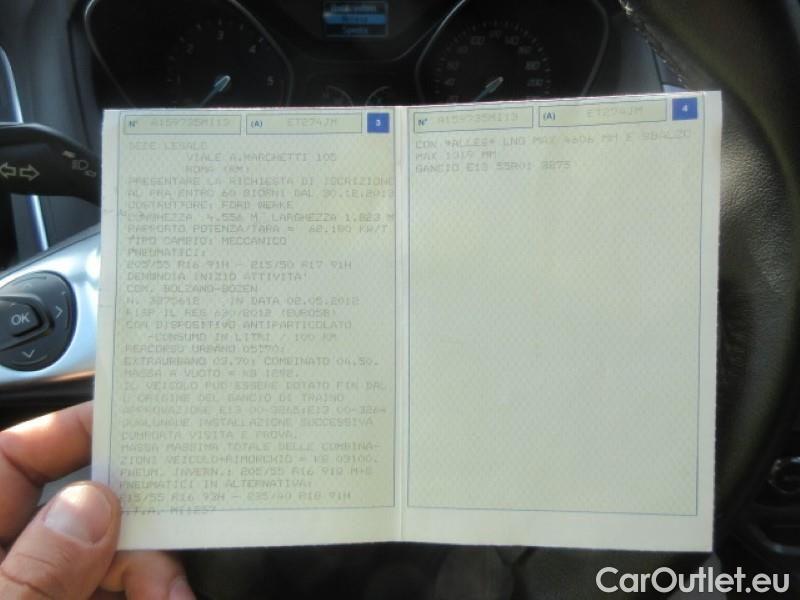 Media
OK
N° A159735M113 (A) ET274JM 3
SEDE LEGALE
VIALE A.MARCHETTI 105
ROMA (RM)
PRESENTARE LA RICHIESTA DI ISCRIZIONE
AL PRA ENTRO 60 GIORNI DAL 30.12.2013
COSTRUTTORE: FORD WERKE
LUNGHEZZA 4.556 M LARGHEZZA 1.823 M
RAPPORTO POTENZA/TARA = 62.180 KW/T
TIPO CAMBIO: MECCANICO
PNEUMATICI:
205/55 R16 91H - 215/50 R17 91H
DENUNCIA INIZIO ATTIVITA'
COM. BOLZANO-BOZEN
N. 3275612 IN DATA 02.05.2012
RISP IL REG 630/2012 (EURO5B)
CON DISPOSITIVO ANTIPARTICOLATO
-CONSUMO IN LITRI / 100 KM
PERCORSO URBANO
EXTRAURBANO 03.70; COMBINATO 04.50.
MASSA A VUOTO = KG 1292.
IL VEICOLO PUO ESSERE DOTATO FIN DAL
L ORIGINE DEL GANCIO DI TRAINO
APPROVAZIONE E13 00-3265;E13 00-3264
QUALUNQUE INSTALLAZIONE SUCCESSIVA
COMPORTA VISITA E PROVA.
MASSA MASSIMA TOTALE DELLE COMBINA-
ZIONI VEICOLO+RIMORCHIO = KG 03100.
PNEUM. INVERN.: 205/55 R16 91Q M+S
PNEUMATICI IN ALTERNATIVA:
215/55 R16 93H - 235/40 R18 91H
N° A159735M113 (A) ET274JM 4
CON *ALLEG* LNG MAX 4606 MM E SBALZO
MAX 1019 MM
GANCIO E13 55R01 3275
CarOutlet.eu